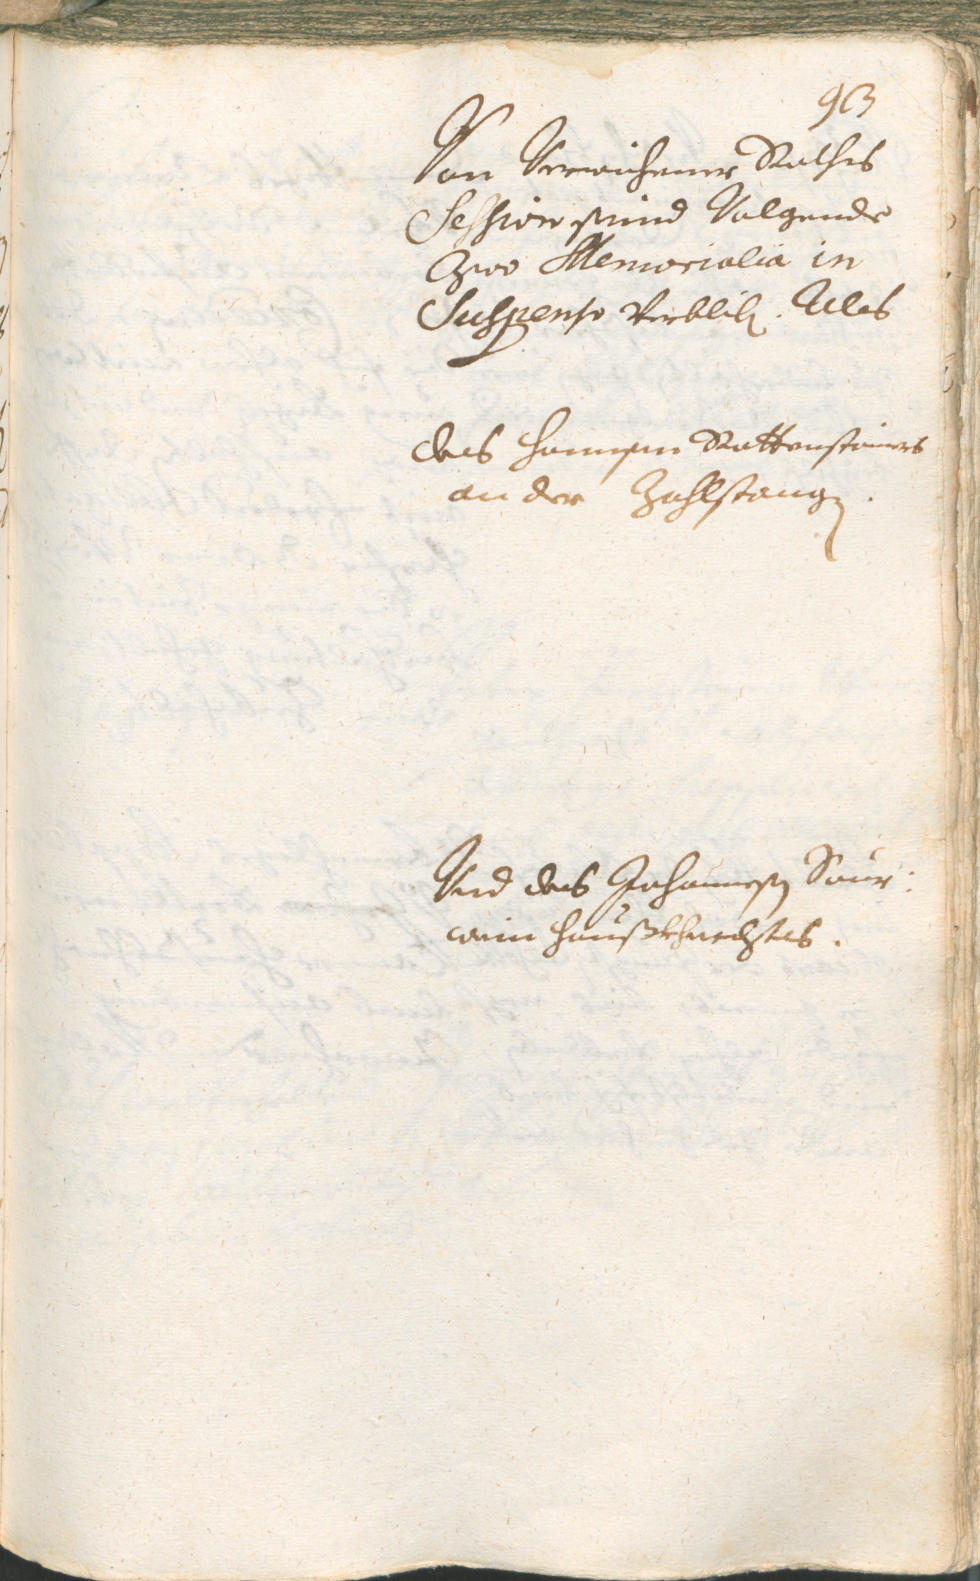 93
Von Verwichener Raths
Session seind Volgende
Zwo Memorialia in
Suspenso Verblib. Als
des Hannsen Rottenstainers
an der Zohlstang.
Und des Johannes Saur:
wein Haußkhnechtes.